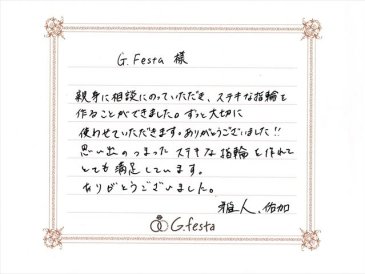 G.Festa 様
親身に相談にのっていただき、ステキな指輪を
作ることができました。ずっと大切に
使わせていただきます。ありがとうございました!!
思い出のつまったステキな指輪を作れて
とても満足しています。
ありがとうございました。
雅人、佑加
G.festa